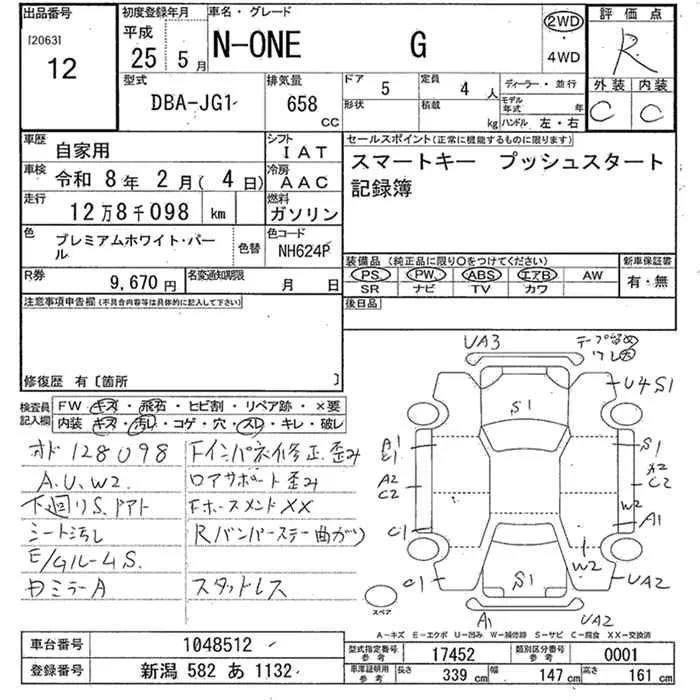 出品番号
[2063]
12
初度登録年月
平成
25 5 月
車名・グレード
N-ONE G
2WD
・
4WD
評価点
R
外装 内装
C C
型式
DBA-JG1
排気量
658
CC
ドア
5
定員
4 人
形状
積載
kg
ディーラー・並行
モデル年式 年
ハンドル 左・右
車歴
自家用
シフト
IAT
車検
令和 8年 2月( 4日)
冷房
AAC
走行
12万8千098 km
燃料
ガソリン
色
プレミアムホワイト・パール
色替
色コード
NH624P
R券
9,670円
名変通知期限
月 日
セールスポイント(正常に機能するものに限ります)
スマートキー プッシュスタート
記録簿
装備品 (純正品に限り○をつけてください)
PS PW ABS エアB AW
SR ナビ TV カワ
新車保証書
有・無
後日品
注意事項申告欄(不具合内容等は具体的に記入して下さい)
修復歴 有〔箇所 〕
検査員記入欄
FW キズ・飛石・ヒビ割・リペア跡・×要
内装 キズ・汚し・コゲ・穴・スレ・キレ・破レ
オド 128098
A.U.W2.
下廻りS.
シート汚し
E/Gルーム S.
ロアサポート歪み
Rバンパーステー曲がり
スタッドレス
UA3
U4S1
S1
A1
S1
A2
C2
C2
W2
A1
C1
W2
C1
S1
UA2
A1
UA2
スペア
A－キズ E－エクボ U－凹み W－補修跡 S－サビ C－腐食 XX－交換済
車台番号
1048512
登録番号
新潟 582 あ 1132
型式指定番号
参考
17452
類別区分番号
参考
0001
車庫証明用
参考
長さ 339 cm 幅 147 cm 高さ 161 cm